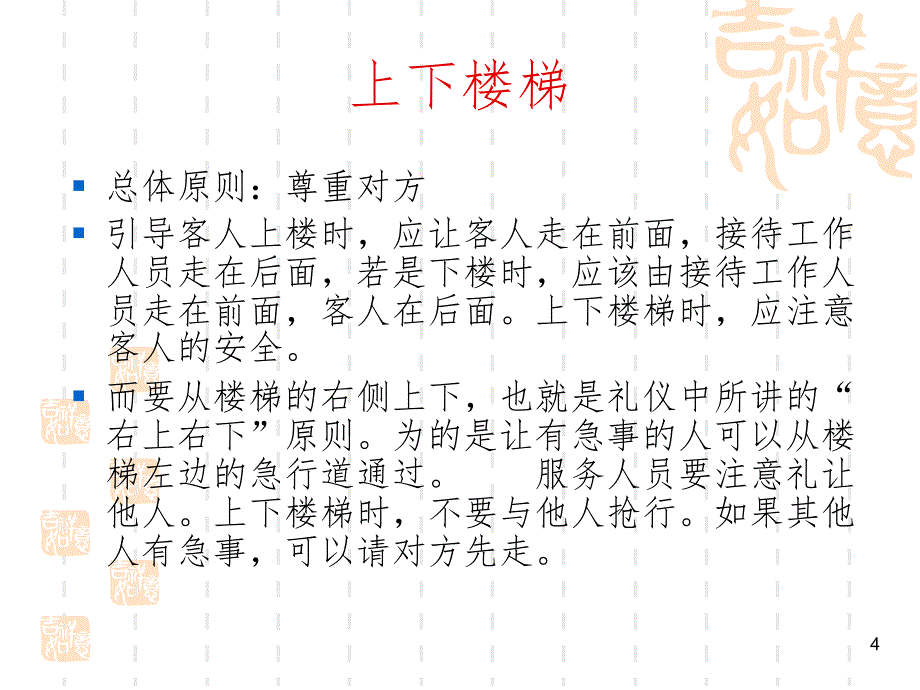 吉祥如意
上下楼梯
总体原则：尊重对方
引导客人上楼时，应让客人走在前面，接待工作
人员走在后面，若是下楼时，应该由接待工作人
员走在前面，客人在后面。上下楼梯时，应注意
客人的安全。
而要从楼梯的右侧上下，也就是礼仪中所讲的“
右上右下”原则。为的是让有急事的人可以从楼
梯左边的急行道通过。　　服务人员要注意礼让
他人。上下楼梯时，不要与他人抢行。如果其他
人有急事，可以请对方先走。
吉祥如意
吉祥如意
吉祥如意
吉祥如意
吉祥如意
吉祥如意
4